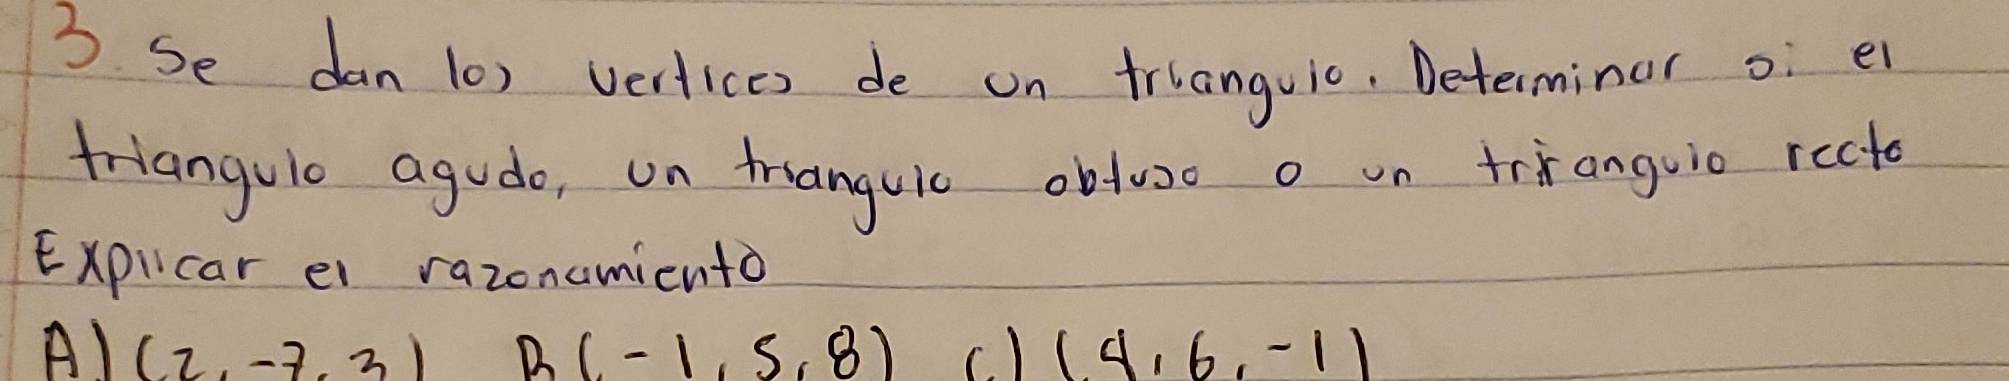 3. Se dan los vertices de un triangulo. Determinar si el
triangulo agudo, un triangulo obtuso o un triangulo recto
Explicar el razonamiento
A) (2, -7, 3) B (-1, 5, 8) C) (4, 6, -1)